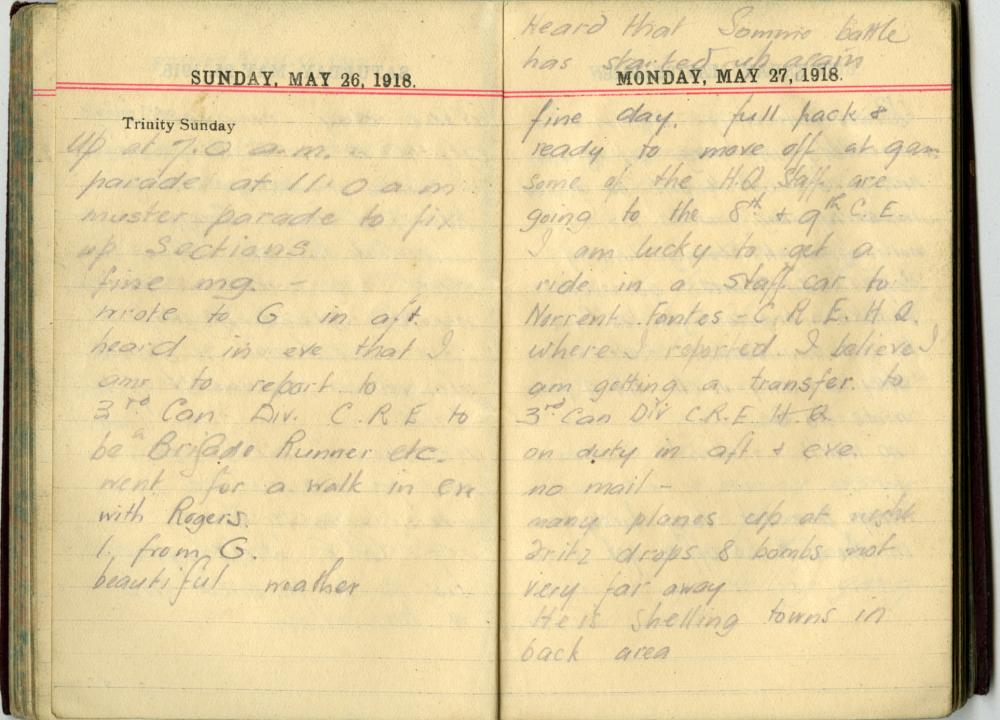 SUNDAY, MAY 26, 1918.
Trinity Sunday
Up at 7.0 a.m.
parade at 11.0 a m
muster parade to fix
up Sections.
fine mg. -
wrote to G in aft.
heard in eve that I
am to report to
3rd Can Div. C.R.E to
be a Brigade Runner etc.
went for a walk in eve
with Rogers.
1. from G.
beautiful weather
Heard that Somme battle
has started up again
MONDAY, MAY 27, 1918.
fine day. full pack &
ready to move off at 9am
some of the H.Q Staff are
going to the 8th & 9th C.E.
I am lucky to get a
ride in a staff car to
Norrent Fontes - C R E. H Q.
where I reported. I believe I
am getting a transfer to
3rd Can Div C.R.E H.Q
on duty in aft & eve.
no mail -
many planes up at night
Fritz drops 8 bombs not
very far away
He is shelling towns in
back area